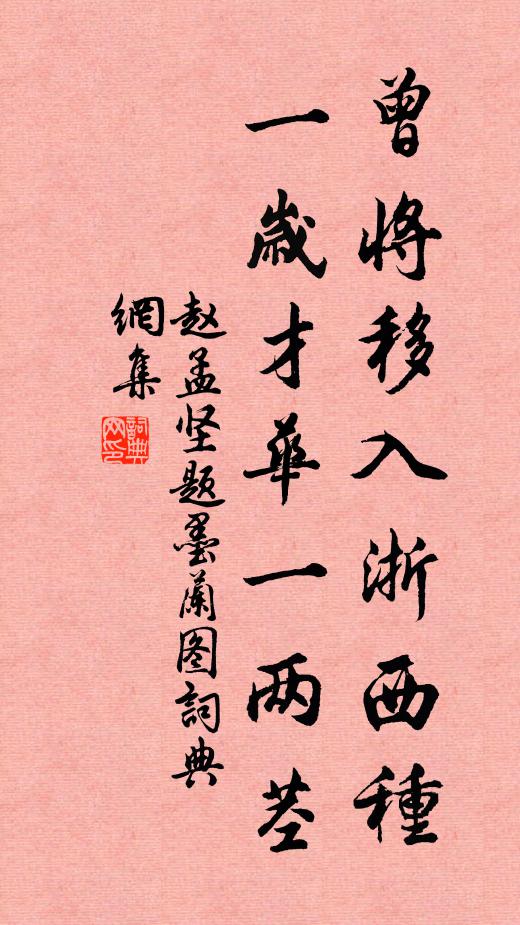 曾將移入浙西種
一歲才華一两茎
赵孟坚题墨蘭图詞典
網集
詞典
网印